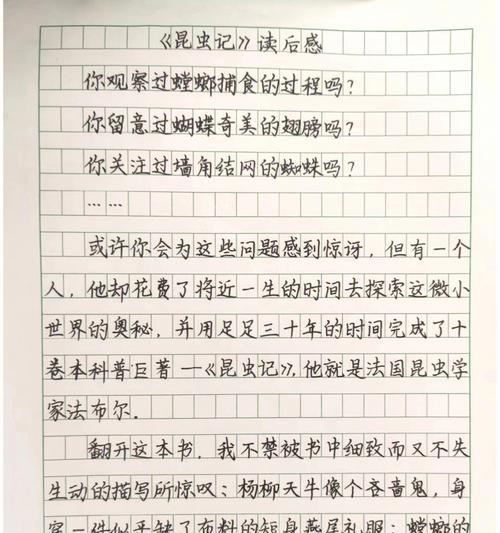 《昆虫记》读后感
你观察过螳螂捕食的过程吗？
你留意过蝴蝶奇美的翅膀吗？
你关注过墙角结网的蜘蛛吗？
……
或许你会为这些问题感到惊讶，但有一个
人，他却花费了将近一生的时间去探索这微小
世界的奥秘，并用足足三十年的时间完成了十
卷本科普巨著—《昆虫记》，他就是法国昆虫学
家法布尔．
翻开这本书，我不禁被书中细致而又不失
生动的描写所惊叹：杨柳天牛像个吝啬鬼，身
穿一件似乎缺了布料的短身燕尾礼服；螳螂的